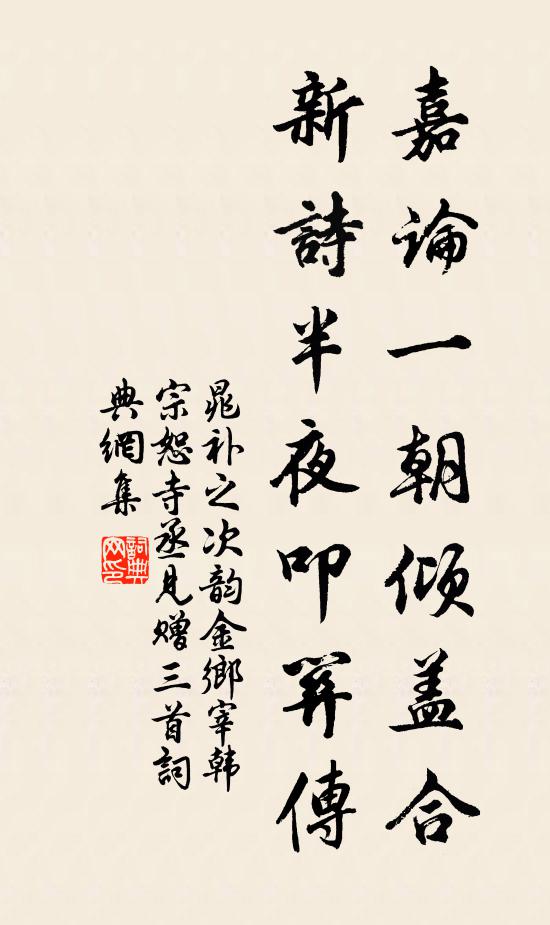 嘉论一朝倾盖合
新詩半夜叩关傳
晁补之次韵金鄉宰韩
宗恕寺丞見赠三首詞
典網集
詞典网印